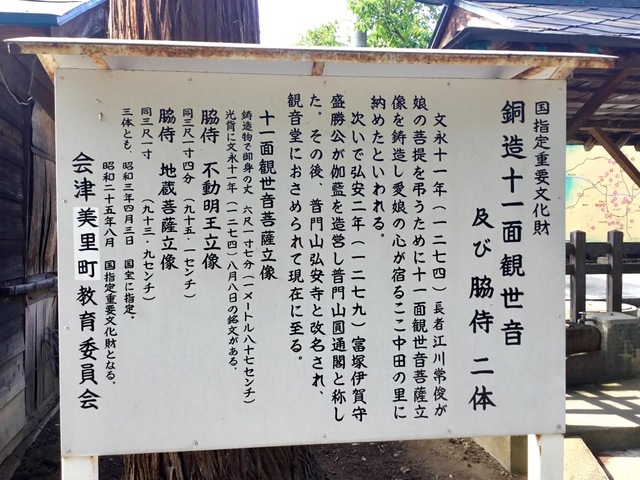 国指定重要文化財
銅造十一面観世音
及び脇侍 二体
文永十一年(一二七四)長者江川常俊が
娘の菩提を弔うために十一面観世音菩薩立
像を鋳造し愛娘の心が宿るここ中田の里に
納めたといわれる。
次いで弘安二年(一二七九)富塚伊賀守
盛勝公が伽藍を造営し普門山圓通閣と称し
た。その後、普門山弘安寺と改名され、
観音堂におさめられて現在に至る。
十一面観世音菩薩立像
鋳造物で御身の丈 六尺一寸七分(一メートル八十七センチ)
光背に文永十一年(一二七四)八月八日の銘文がある。
脇侍 不動明王立像
同三尺一寸四分(九十五・一センチ)
脇侍 地蔵菩薩立像
同三尺一寸(九十三・九センチ)
三体とも、昭和三年四月三日 国宝に指定。
昭和二十五年八月 国指定重要文化財となる。
会津美里町教育委員会